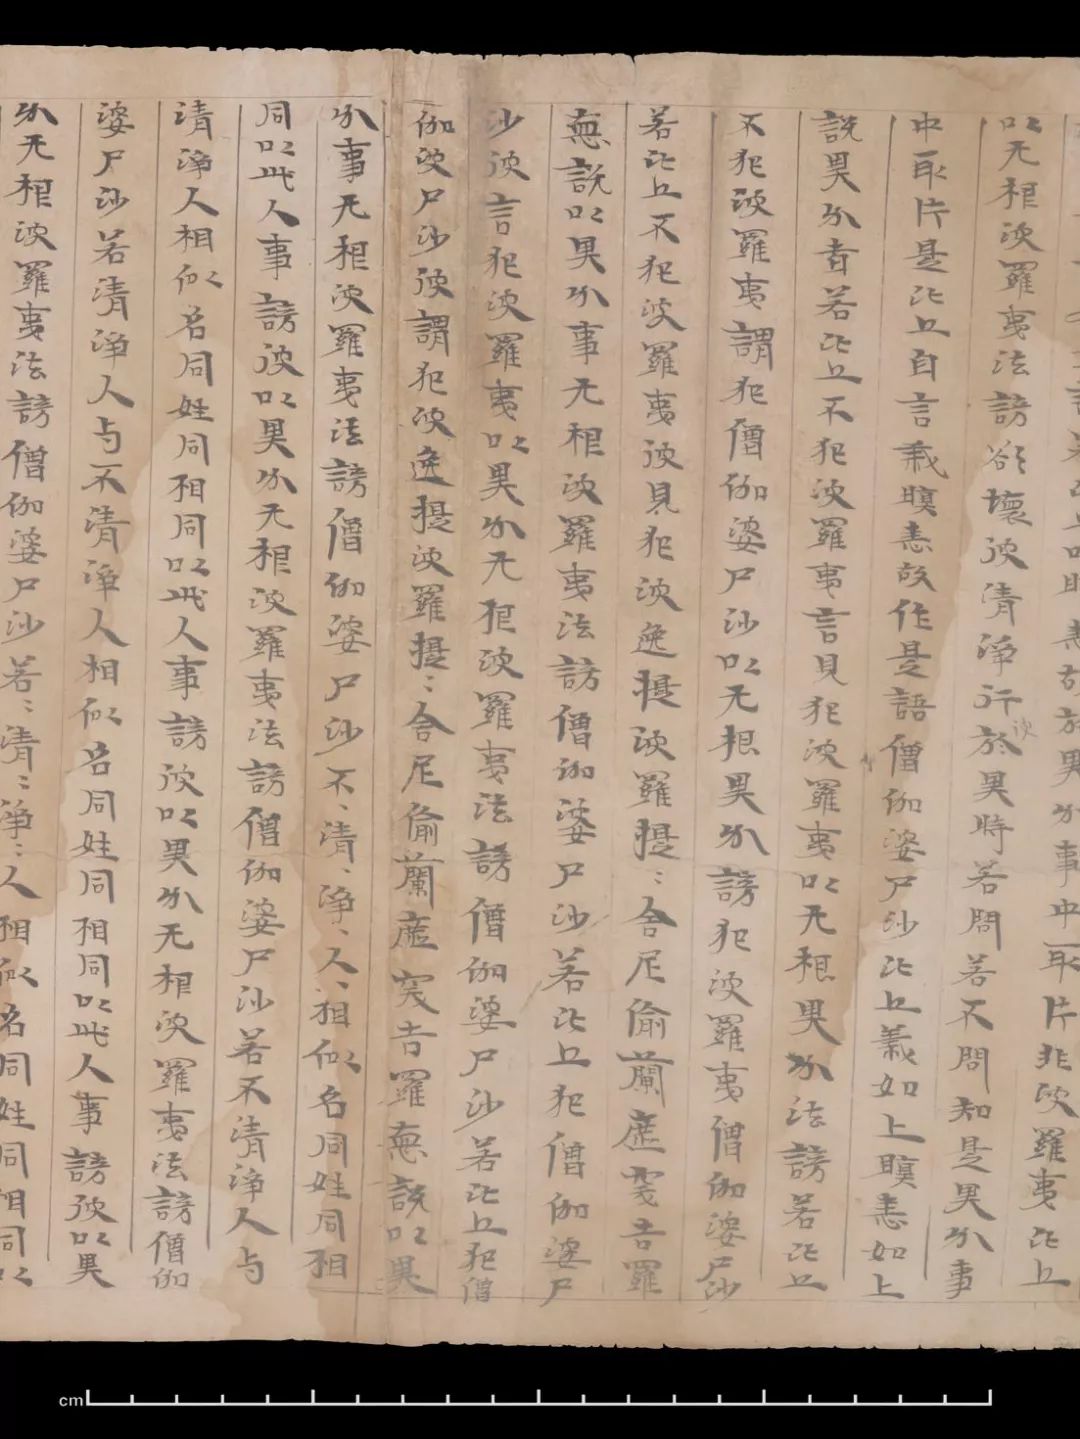 瞋恚故於異分事中取片非波羅夷比丘
以无根波羅夷法謗欲壞彼清淨行彼於異時若問若不問知是異分事
中取片是比丘自言我瞋恚故作是語僧伽婆尸沙比丘義如上瞋恚如上
説異分者若比丘不犯波羅夷言見犯波羅夷以无根異分法謗若比丘
不犯波羅夷謂犯僧伽婆尸沙以无根異分謗犯波羅夷僧伽婆尸沙
若比丘不犯波羅夷彼見犯波逸提波羅提〻舍尼偷蘭遮突吉羅
惡説以異分事无根波羅夷法謗僧伽婆尸沙若比丘犯僧伽婆尸
沙彼言犯波羅夷以異分无根波羅夷法謗僧伽婆尸沙若比丘犯僧
伽婆尸沙彼謂犯波逸提波羅提〻舍尼偷蘭遮突吉羅惡説以異
分事无根波羅夷法謗僧伽婆尸沙不〻清〻淨〻人〻相似名同姓同相
同以此人事謗彼以異分无根波羅夷法謗僧伽婆尸沙若不清淨人与
清淨人相似名同姓同相同以此人事謗彼以異分无根波羅夷法謗僧伽
婆尸沙若清淨人与不清淨人相似名同姓同相同以此人事謗彼以異
分无根波羅夷法謗僧伽婆尸沙若〻清〻淨〻人相似名同姓同相同以
cm